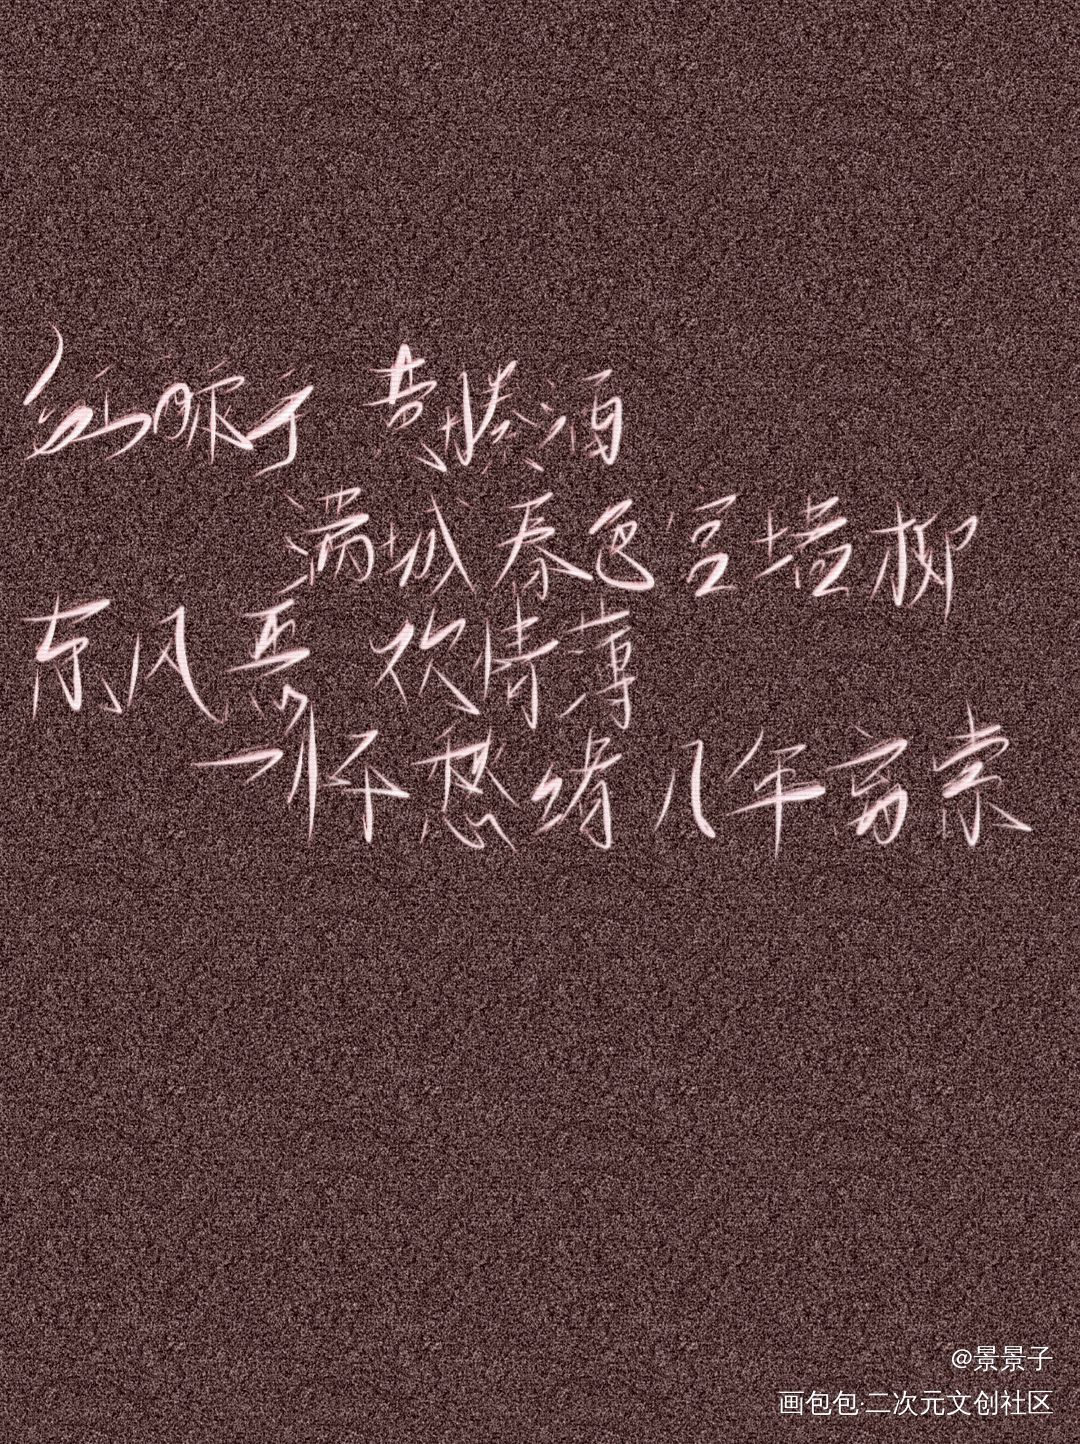 红酥手 黄縢酒
满城春色宫墙柳
东风恶 欢情薄
一怀愁绪几年离索
@景景子
画包包·二次元文创社区